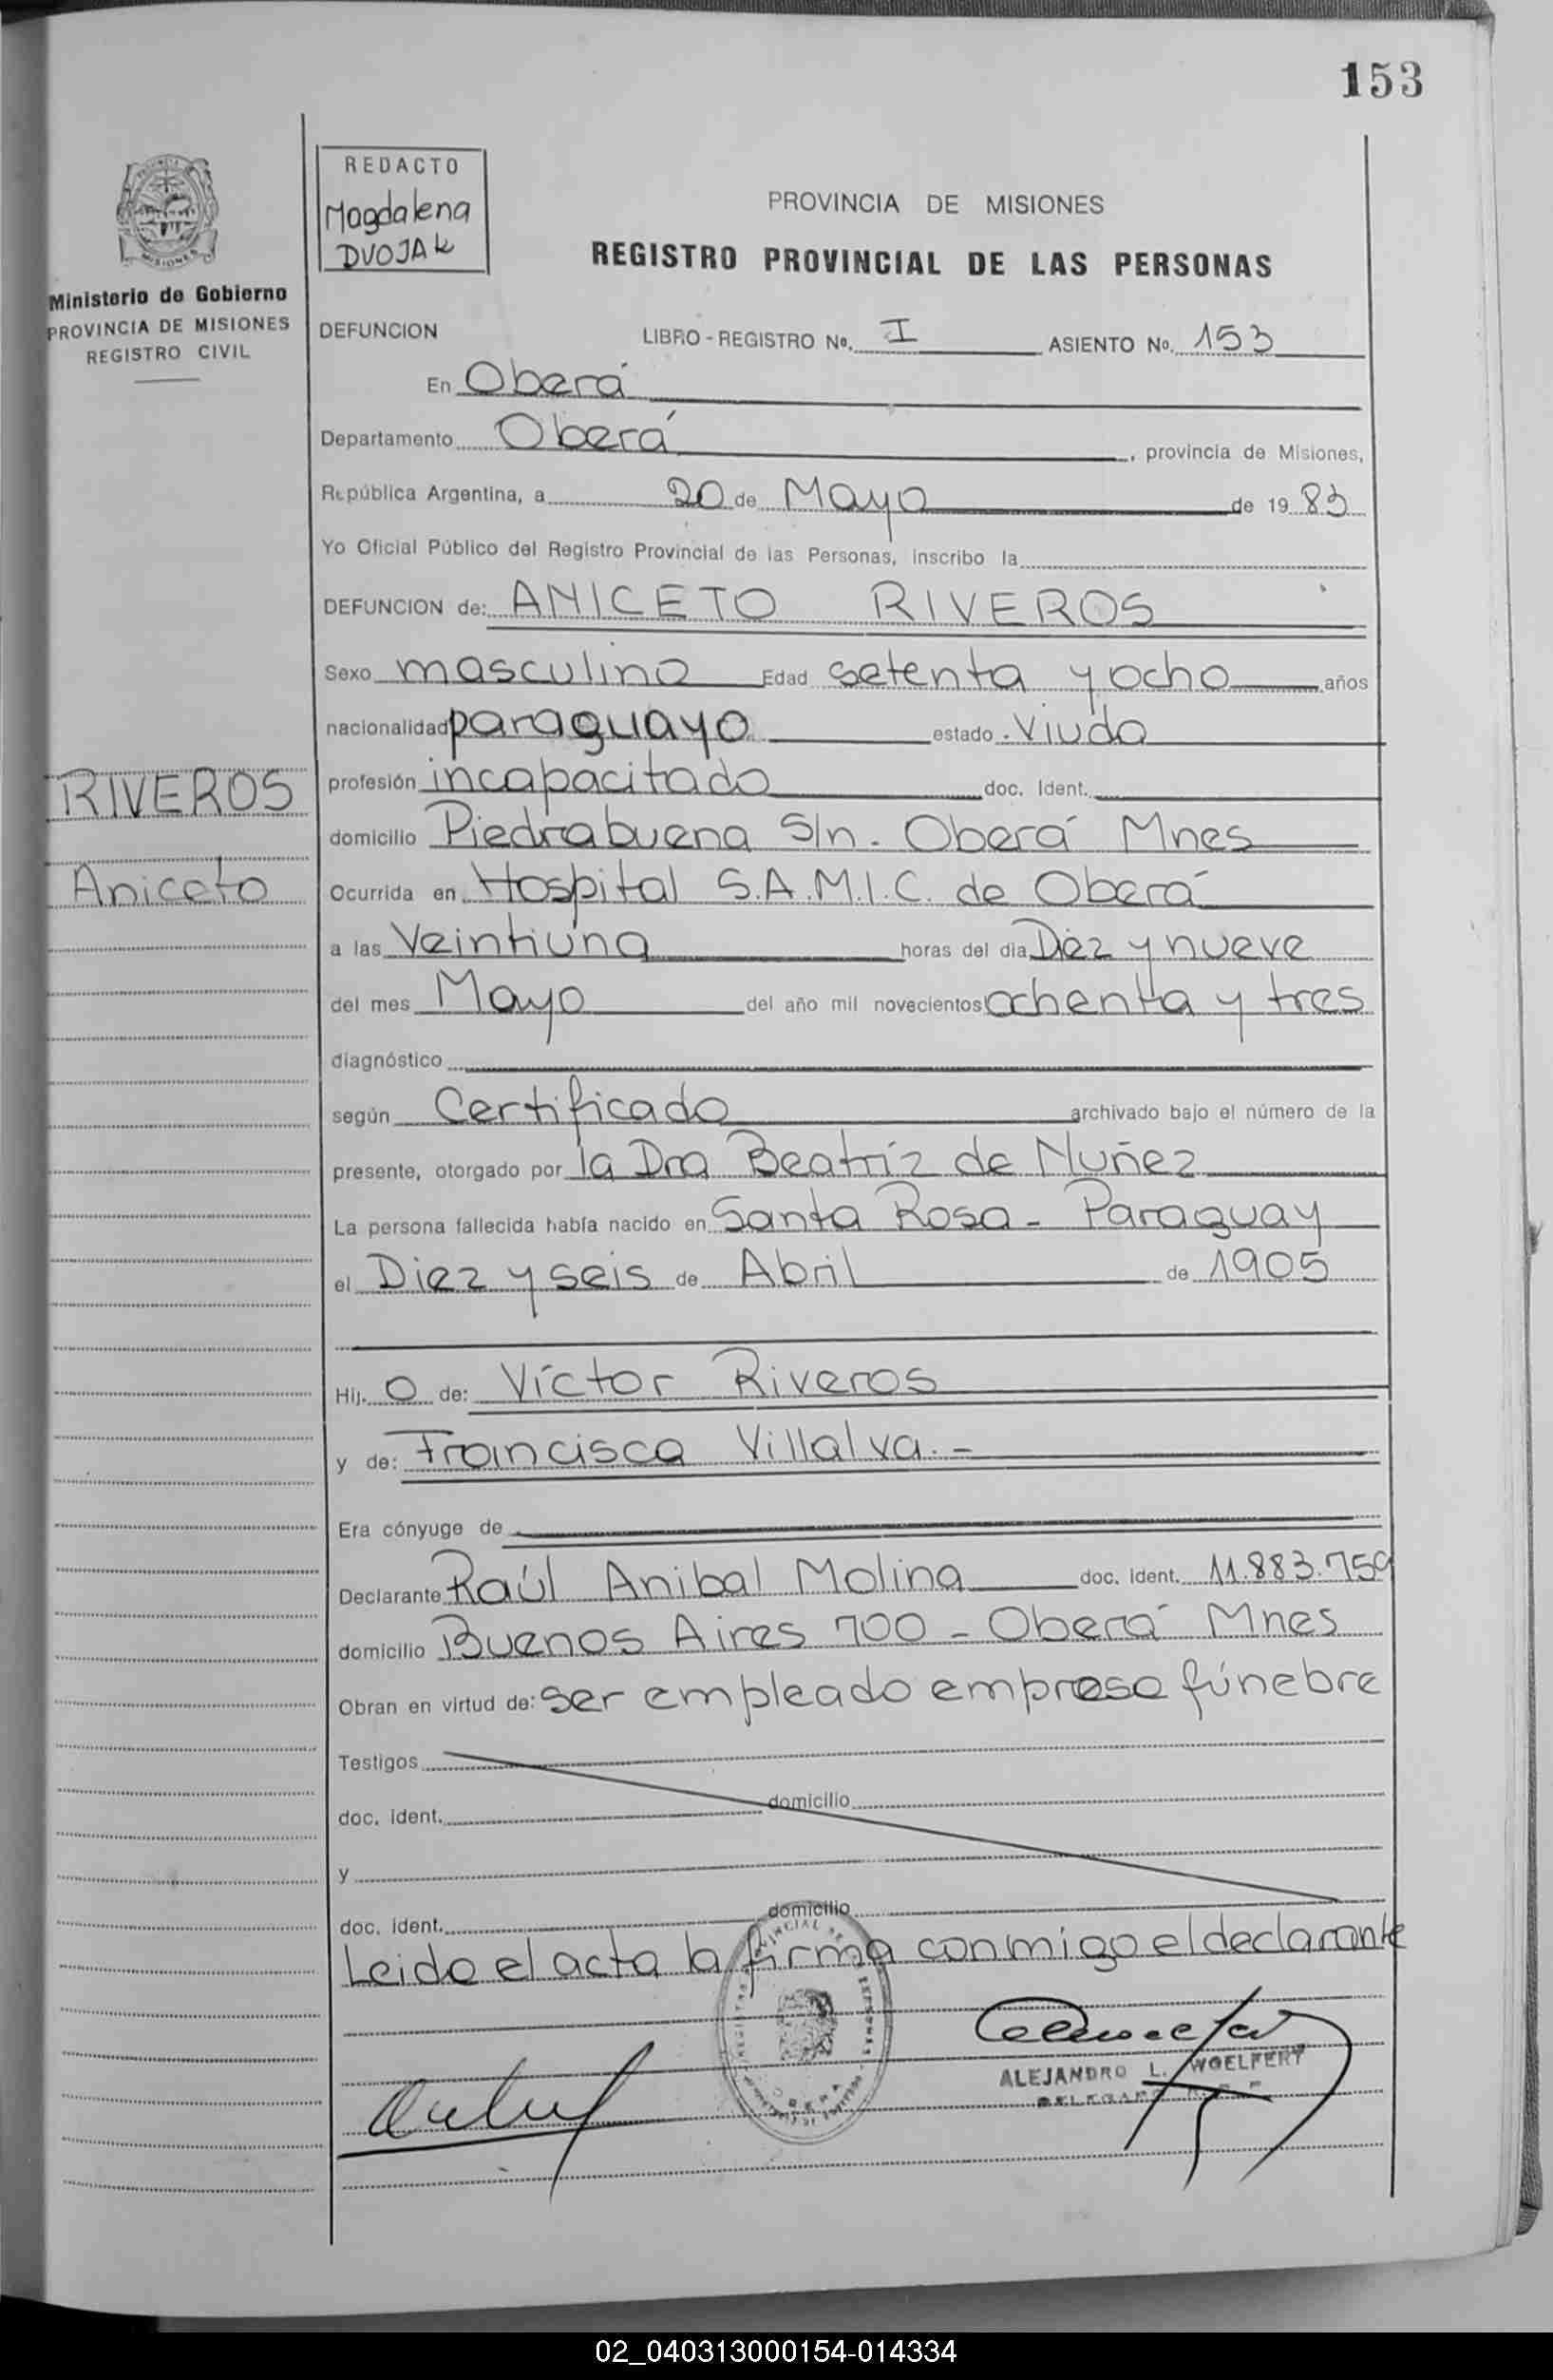 153
REDACTO
Magdalena
DVOJAK
MISIONES
Ministerio de Gobierno
PROVINCIA DE MISIONES
REGISTRO CIVIL
PROVINCIA DE MISIONES
REGISTRO PROVINCIAL DE LAS PERSONAS
DEFUNCION LIBRO - REGISTRO Nº. I ASIENTO Nº. 153
En Oberá
Departamento Oberá , provincia de Misiones,
República Argentina, a 20 de Mayo de 19 83
Yo Oficial Público del Registro Provincial de las Personas, inscribo la
DEFUNCION de: ANICETO RIVEROS
Sexo masculino Edad setenta y ocho años
nacionalidad paraguayo estado Viudo
RIVEROS
Aniceto
profesión incapacitado doc. Ident.
domicilio Piedrabuena S/n. Oberá Mnes
Ocurrida en Hospital S.A.M.I.C. de Oberá
a las Veintiuna horas del día Diez y nueve
del mes Mayo del año mil novecientos ochenta y tres
diagnóstico
según Certificado archivado bajo el número de la
presente, otorgado por la Dra Beatríz de Nuñez
La persona fallecida había nacido en Santa Rosa - Paraguay
el Diez y seis de Abril de 1905
Hij. o de: Víctor Riveros
y de: Francisca Villalva. -
Era cónyuge de
Declarante Raúl Anibal Molina doc. Ident. 11.883.759
domicilio Buenos Aires 700 - Oberá Mnes
Obran en virtud de: ser empleado empresa fúnebre
Testigos
doc. ident. domicilio
y
doc. ident. domicilio
Leido el acta la firma conmigo el declarante
ALEJANDRO L. WOELFERT
02_040313000154-014334